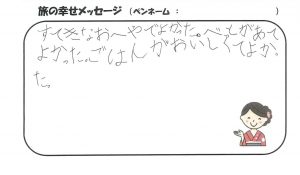 旅の幸せメッセージ (ペンネーム： )
すてきなおへやでよかった。べっどがあて
よかった。ごはんがおいしくてよか
た。